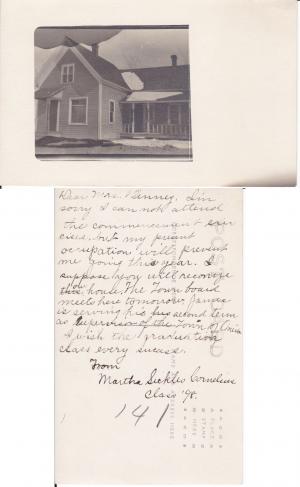 Dear Mrs. Kenney, I'm
sorry I can not attend
the commencement exer
cises, but my present
occupation will prevent
me going this year. I
suppose you will recognize
this house. The Town board
meets here tomorrow. James
is serving his second term
as Supervisor of the Town of Union
I wish the graduation
class every success.
From
Martha Sickles Cornelius
Class '98.
141
PLACE
STAMP
HERE